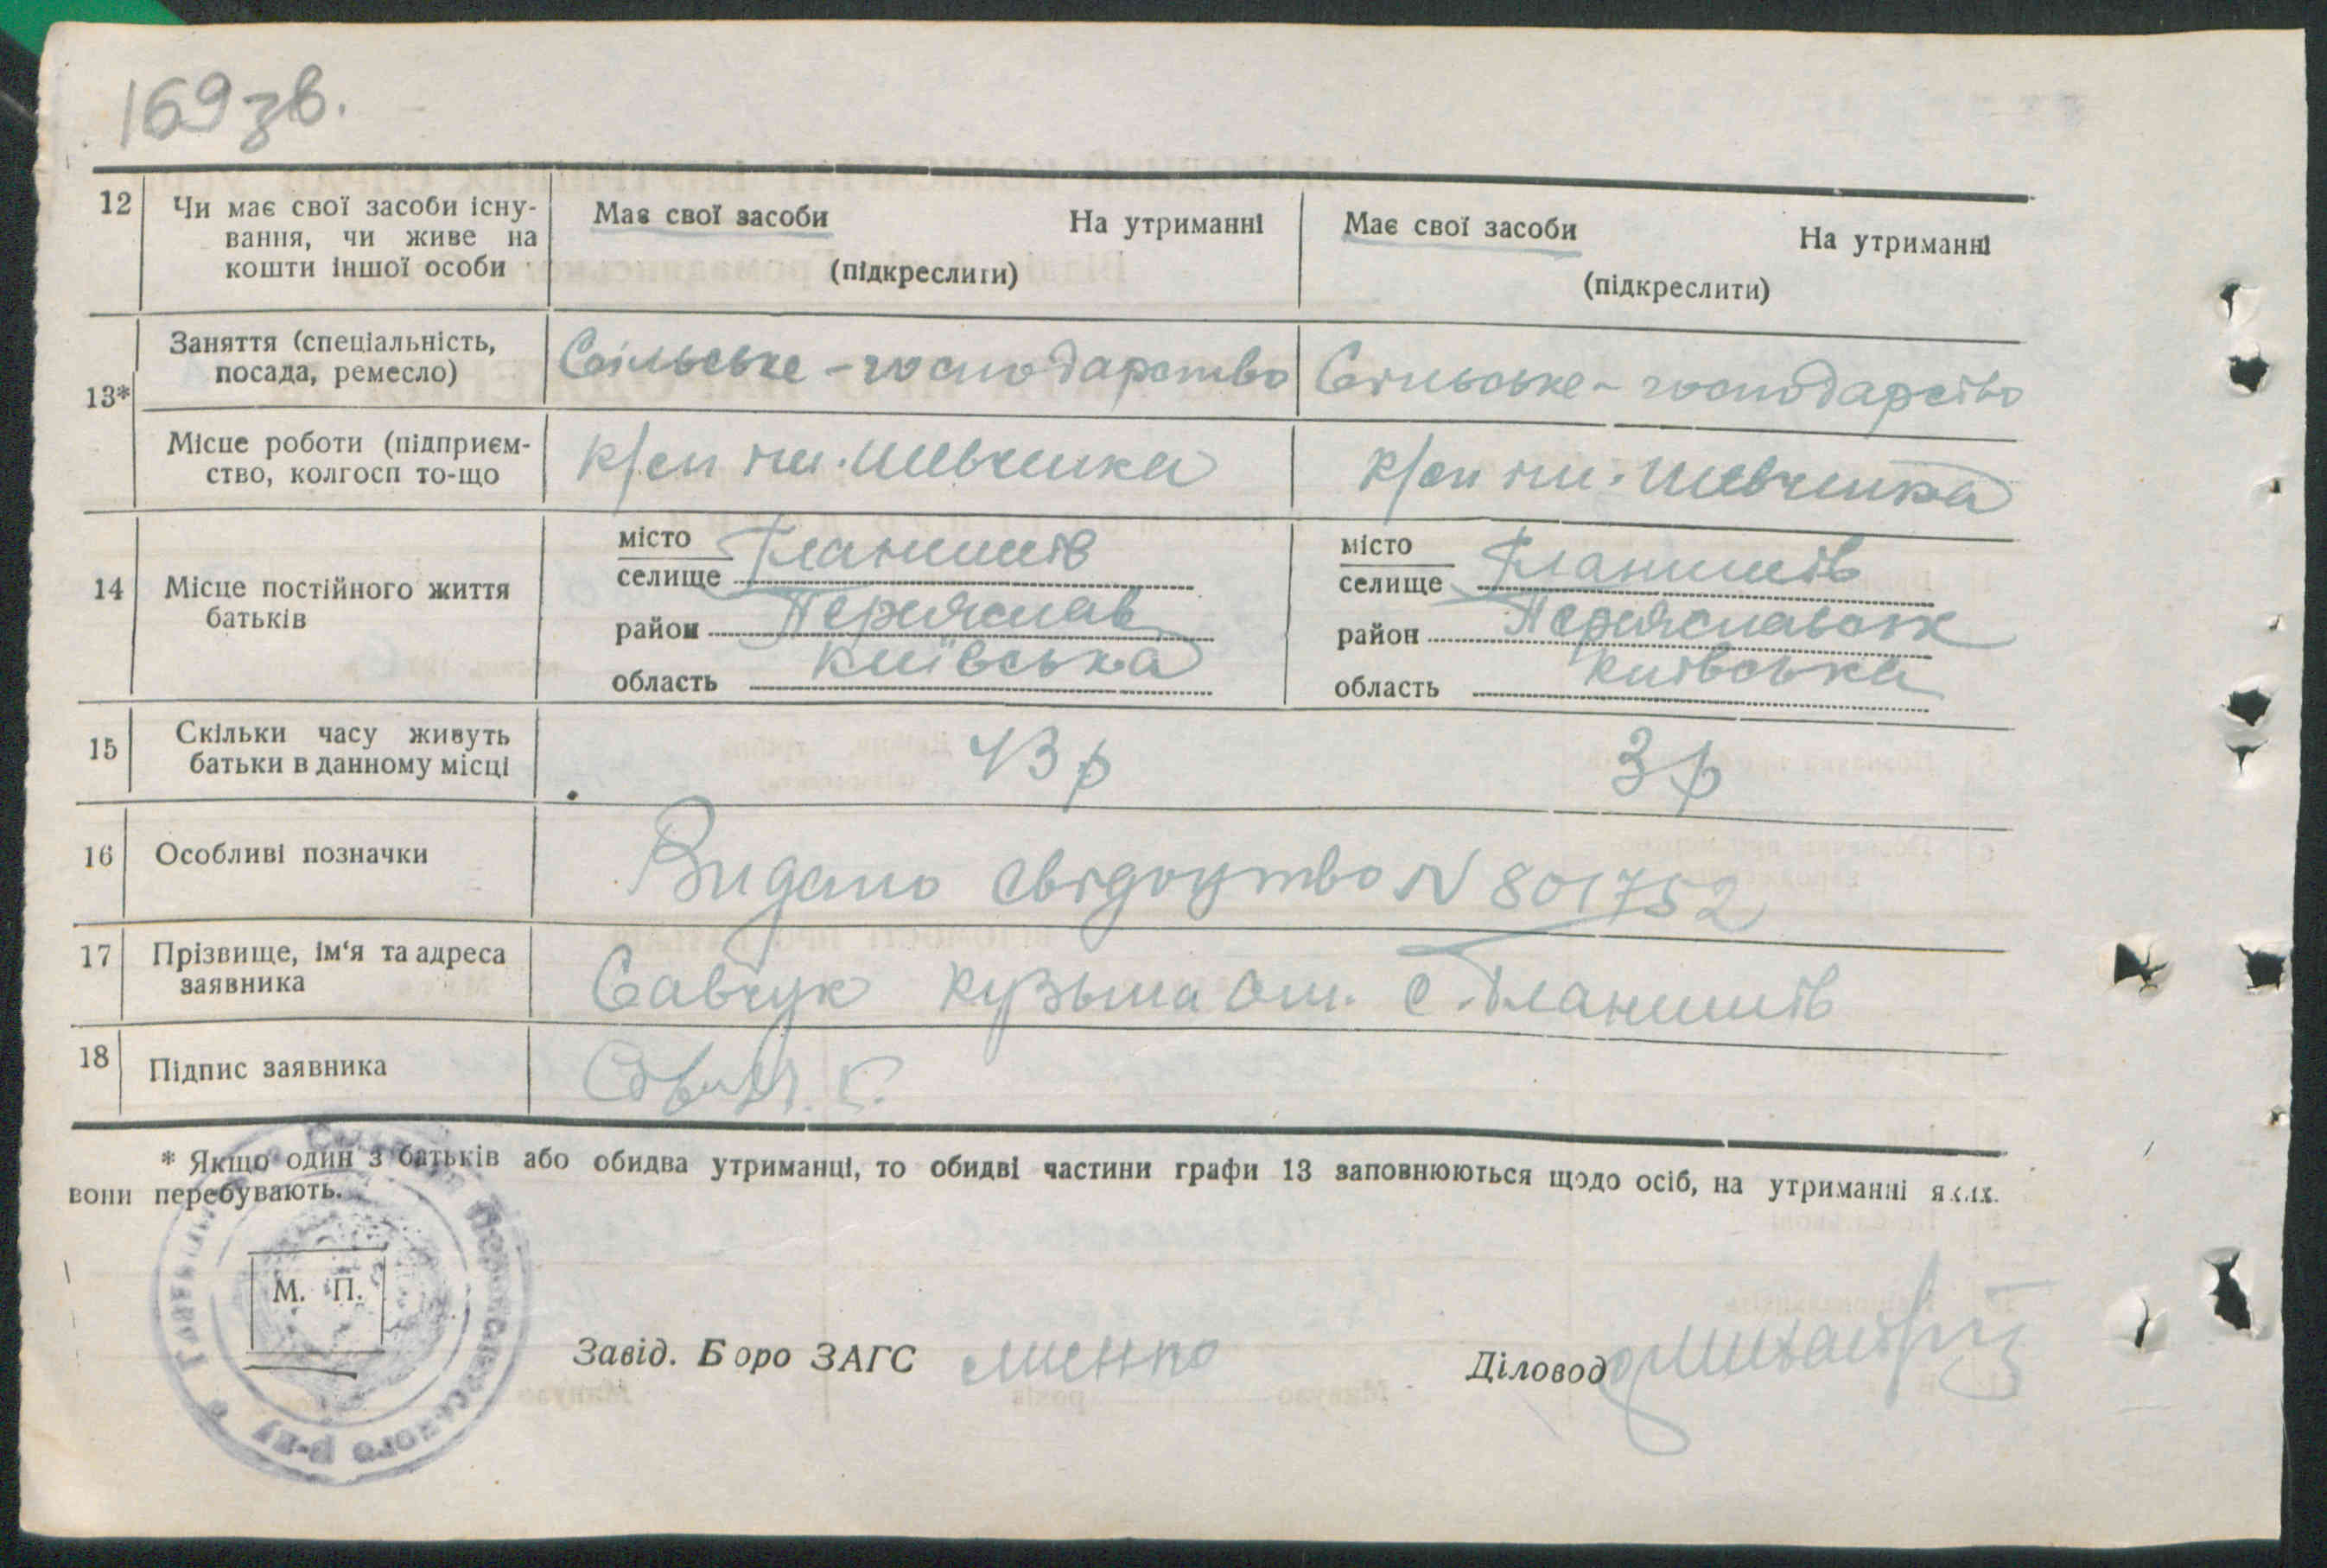 169 зв.
12 Чи має свої засоби існу- Має свої засоби На утриманні Має свої засоби На утриманні
вання, чи живе на
кошти іншої особи (підкреслити) (підкреслити)
13* Заняття (спеціальність, Сільське - господарство Сільське - господарство
посада, ремесло)
Місце роботи (підприєм- к/сп ім. Шевченка к/сп ім. Шевченка
ство, колгосп то-що
14 Місце постійного життя батьків
місто Гланишів місто Гланишів
селище селище
район Переяслав район Переяславськ
область Київська область Київська
15 Скільки часу живуть 43 р 3 р
батьки в данному місці
16 Особливі позначки Видано свідоцтво N 801752
17 Прізвище, ім‘я та адреса Савчук Кузьма с. Гланишів
заявника
18 Підпис заявника
* Якщо один з батьків або обидва утриманці, то обидві частини графи 13 заповнюються щодо осіб, на утриманні яких
вони перебувають.
М. П.
Завід. Бюро ЗАГС Діловод